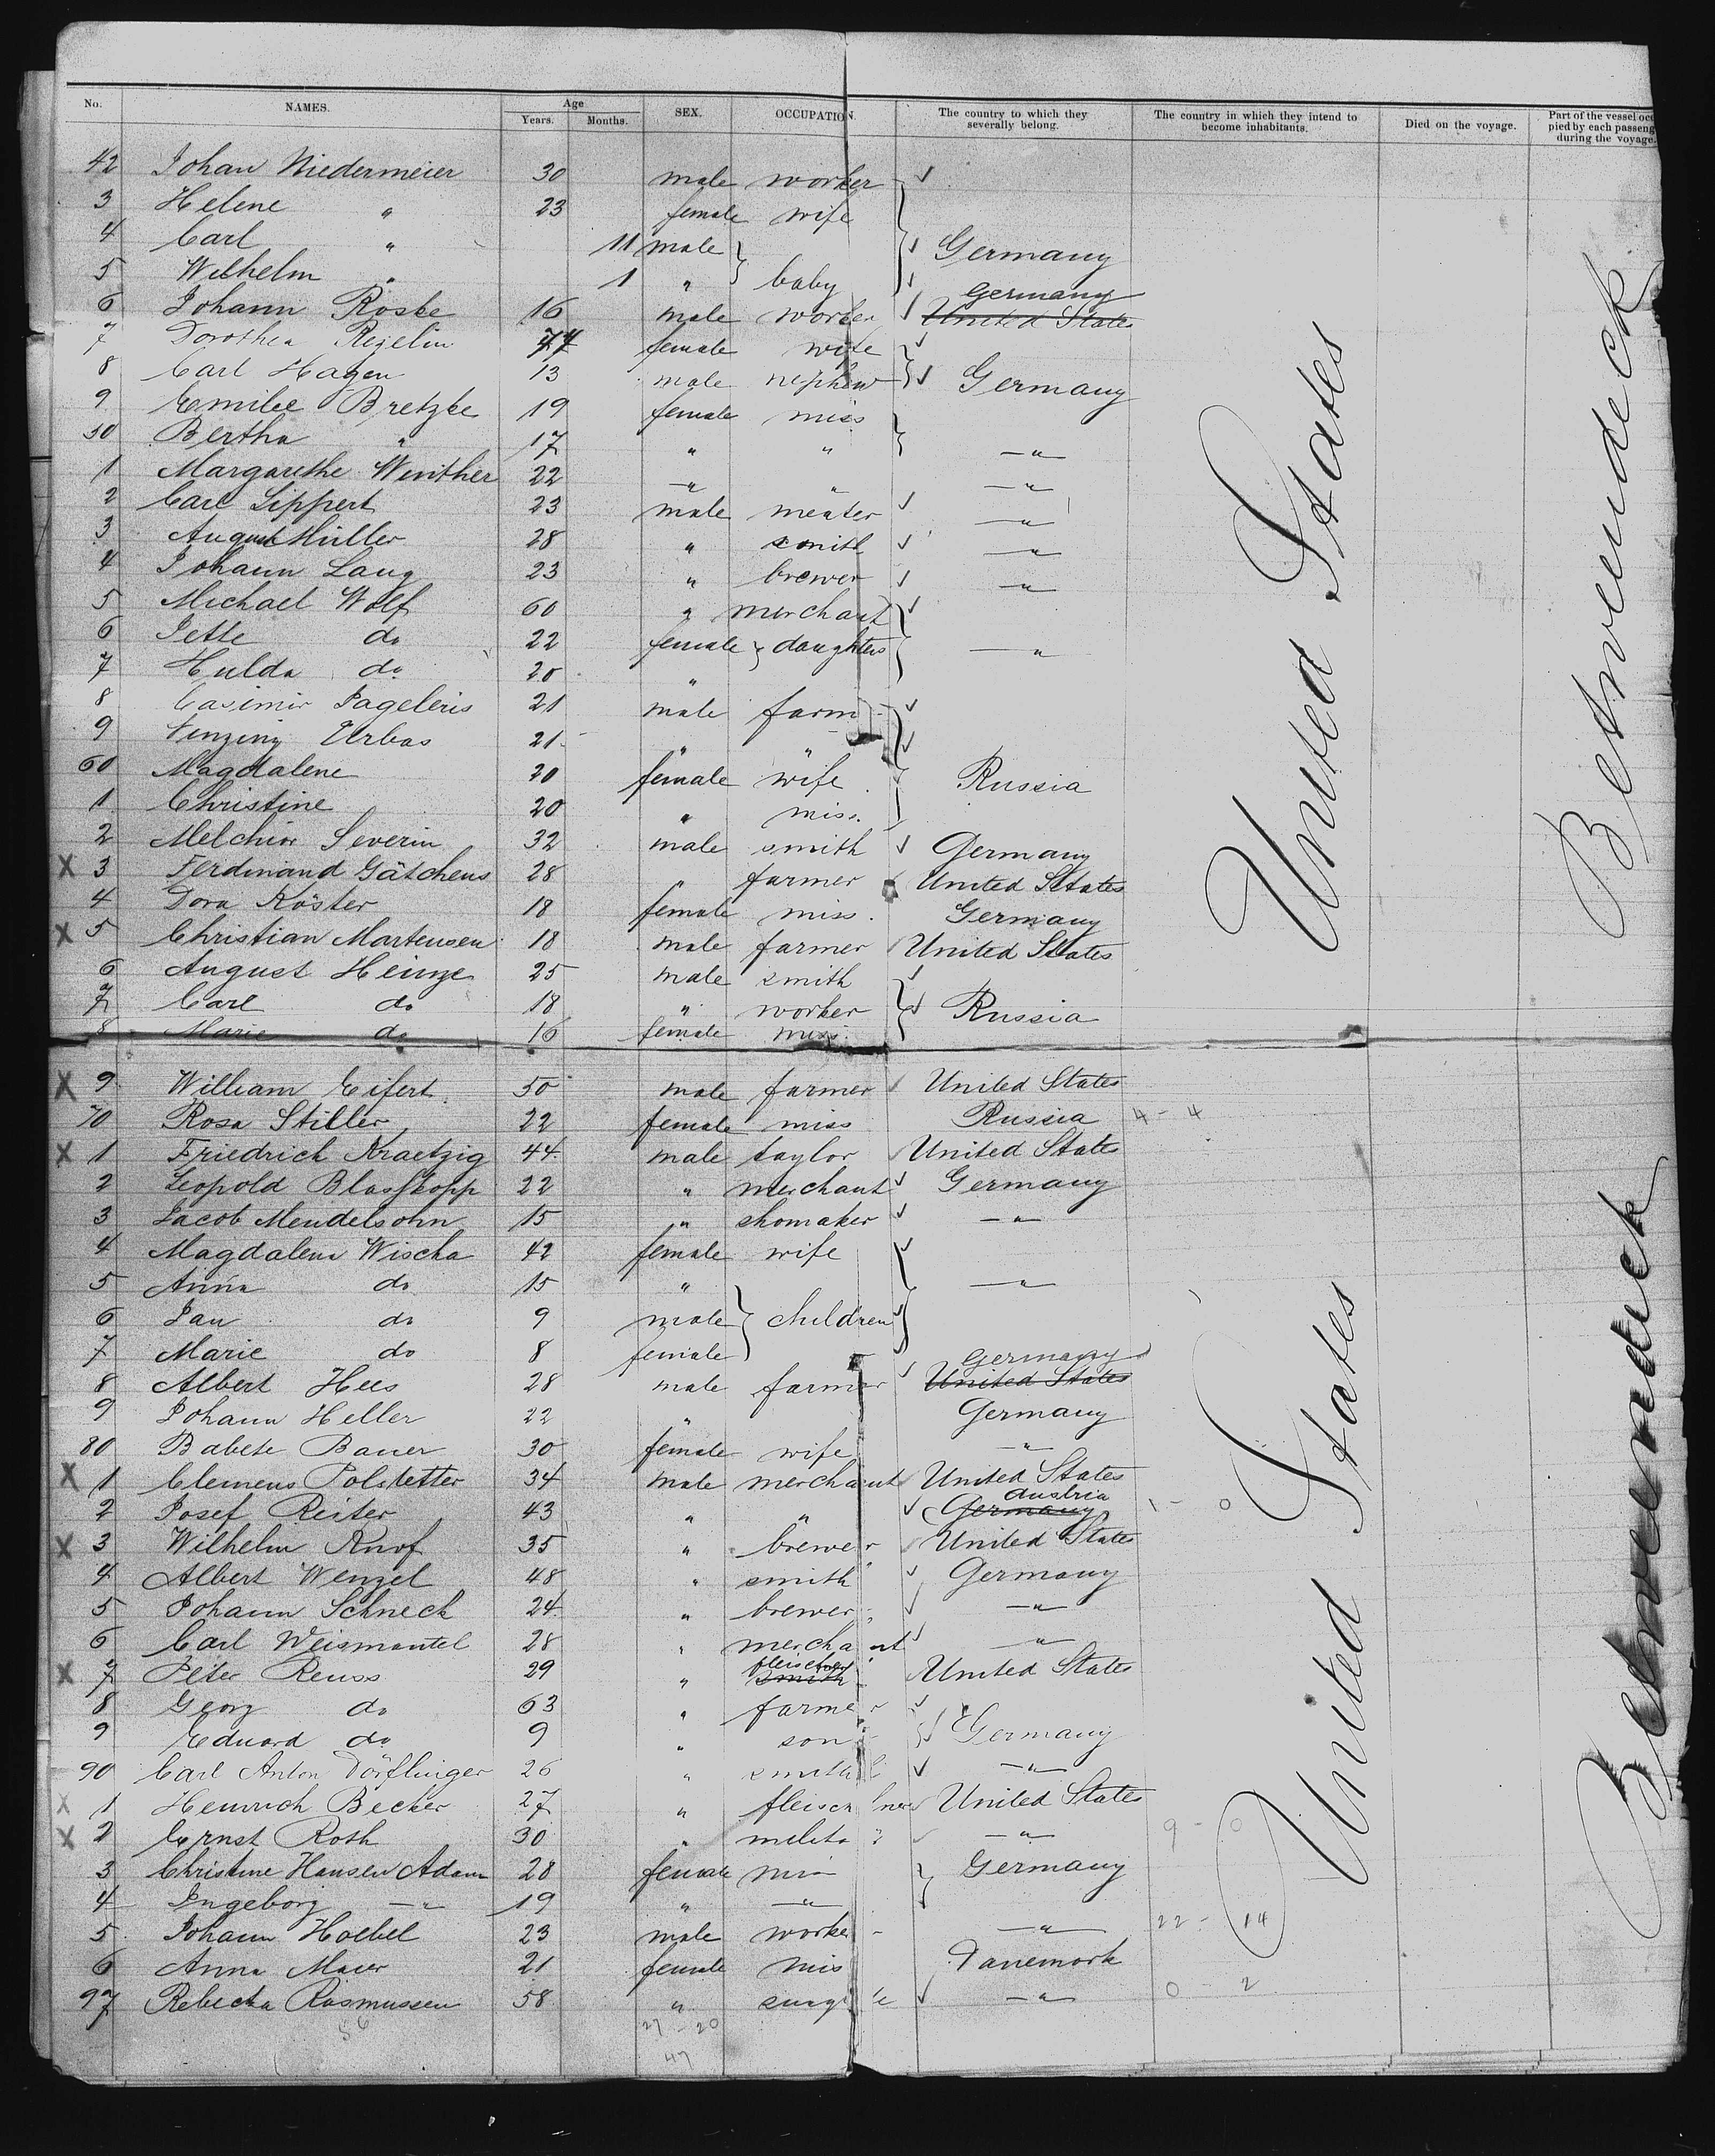 No. NAMES. Age Years. Months. SEX. OCCUPATION. The country to which they severally belong. The country in which they intend to become inhabitants. Died on the voyage. Part of the vessel occ pied by each passeng during the voyage.
42 Johan Niedermeier 30 male worker
3 Helene " 23 female wife
4 Carl " 11 male Germany
5 Wilhelm " 1 " baby
6 Johann Röske 16 male worker Germany United States
7 Dorothea female wife
8 Carl Hagen 13 male nephew Germany
9 Emilie Bretzke 19 female miss
50 Bertha " 17 " " — " —
1 Margarethe Winther 22 — " — " — " —
2 Carl Lippert 23 male — " —
3 August Müller 28 " smith — " —
4 Johann Lang 23 " brewer — " —
5 Michael Wolf 60 " merchant
6 Jette do 22 female daughters — " —
7 Hulda do 20 "
8 Casimir Pageleris 21 male farm
9 Urbas 21 " "
60 Magdalene 20 female wife Russia
1 Christine 20 " miss.
2 Melchior Severin 32 male smith Germany
X 3 Ferdinand Gätchens 28 " farmer United States
4 Dora Köster 18 female miss. Germany
X 5 Christian Martensen 18 male farmer United States
6 August Heinze 25 male smith
7 Carl do 18 " worker Russia
8 Marie do 16 female miss.
X 9 William Eifert 50 male farmer United States
70 Rosa Stiller 22 female miss Russia 4 - 4
X 1 Friedrich Kraetzig 44 male taylor United States
2 Leopold Blasskopp 22 " merchant Germany
3 Jacob Mendelsohn 15 " shomaker — " —
4 Magdalena Wischa 42 female wife
5 Anna do 15 " — " —
6 Jan do 9 male children
7 Marie do 8 female
8 Albert Hees 28 male farmer Germany United States
9 Johann Heller 22 " Germany
80 Babete Bauer 30 female wife — " —
X 1 Clemens Polstetter 34 male merchant United States
2 Josef Reiter 43 " " Austria Germany 1 - 0
X 3 Wilhelm Knof 35 " brewer United States
4 Albert Wenzel 48 " smith Germany
5 Johann Schneck 24 " brewer — " —
6 Carl Weismantel 28 " merchant — " —
X 7 Peter Reuss 29 " smith United States
8 Georg do 63 " farmer
9 Eduard do 9 " son Germany
90 Carl Anton Dörflinger 26 " smith — " —
X 1 Heinrich Becker 27 " United States
X 2 Ernst Roth 30 " — " — 9 - 0
3 Christine Hansen Adam 28 female Germany
4 Ingeborg — " — 19 " — " —
5 Johann Hoebel 23 male worker — " — 22 - 14
6 Anna Maier 21 female mis Danemark
97 Rebecka Rasmussen 58 " — " — 0 - 2
56 27 - 20
47
United States
United States
Betweendeck
Betweendeck